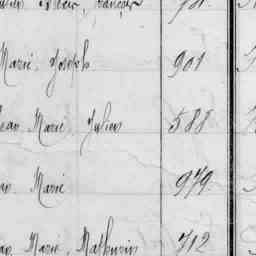 François
Marie, Joseph 901
Jean Marie, Julien 588
Marie 979
Marie, Mathurin 712